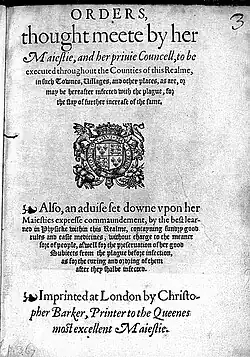 ORDERS,
thought meete by her
Maiestie, and her priuie Councell, to be
executed throughout the Counties of this Realme,
in such Townes, Villages, and other places, as are, or
may be hereafter infected with the plague, for
the stay of further increase of the same.
Also, an aduise set downe vpon her
Maiesties expresse commaundement, by the best lear-
ned in Physicke within this Realme, contayning sundry good
rules and easie medicines, without charge to the meaner
sort of people, aswell for the preseruation of her good
Subiects from the plague before infection,
as for the curing and ordring of them
after they shalbe infected.
Imprinted at London by Christo-
pher Barker, Printer to the Queenes
most excellent Maiestie.
3